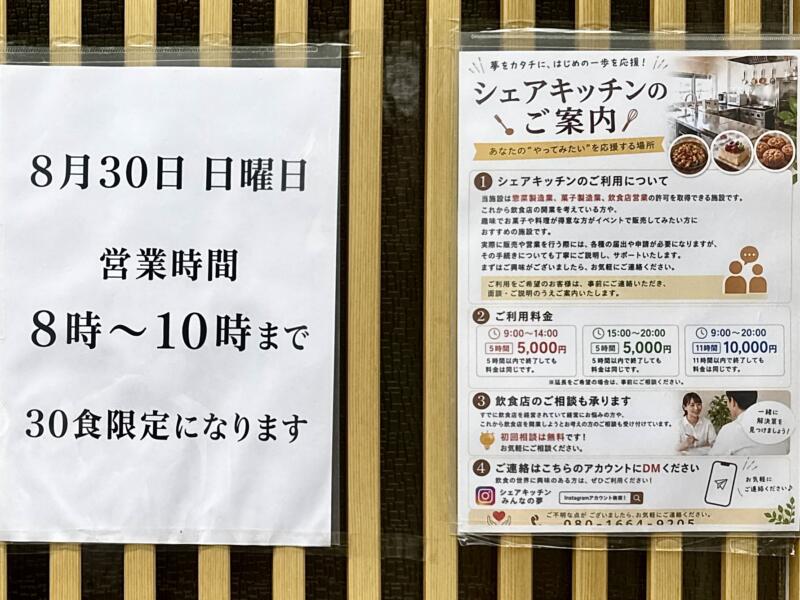 8月30日 日曜日
営業時間
8時～10時まで
30食限定になります
夢をカタチに、はじめの一歩を応援！
シェアキッチンの
ご案内
あなたの“やってみたい”を応援する場所
1 シェアキッチンのご利用について
当施設は惣菜製造業、菓子製造業、飲食店営業の許可を取得できる施設です。
これから飲食店の開業を考えている方や、
趣味でお菓子や料理が得意な方がイベントで販売してみたい方に
おすすめの施設です。
実際に販売や営業を行う際には、各種の届出や申請が必要になりますが、
その手続きについても丁寧にご説明し、サポートいたします。
まずはご興味がございましたら、お気軽にご連絡ください。
ご利用をご希望のお客様は、事前にご連絡いただき、
面談・ご説明のうえご案内いたします。
2 ご利用料金
9:00～14:00
5時間 5,000円
5時間以内で終了しても
料金は同じです。
15:00～20:00
5時間 5,000円
5時間以内で終了しても
料金は同じです。
9:00～20:00
11時間 10,000円
11時間以内で終了しても
料金は同じです。
※延長をご希望の場合は、事前にご相談ください。
3 飲食店のご相談も承ります
すでに飲食店を経営されていて経営にお悩みの方や、
これから飲食店を開業しようとお考えの方のご相談も受け付けています。
初回相談は無料です！
お気軽にご相談ください。
一緒に
解決策を
見つけましょう！
4 ご連絡はこちらのアカウントにDMください
飲食の世界に興味のある方は、ぜひご利用ください！
シェアキッチン
みんなの夢
Instagramアカウント検索！
お気軽に
ご連絡ください♪
ご不明な点がございましたら、お気軽にご連絡ください。
080-1664-9205